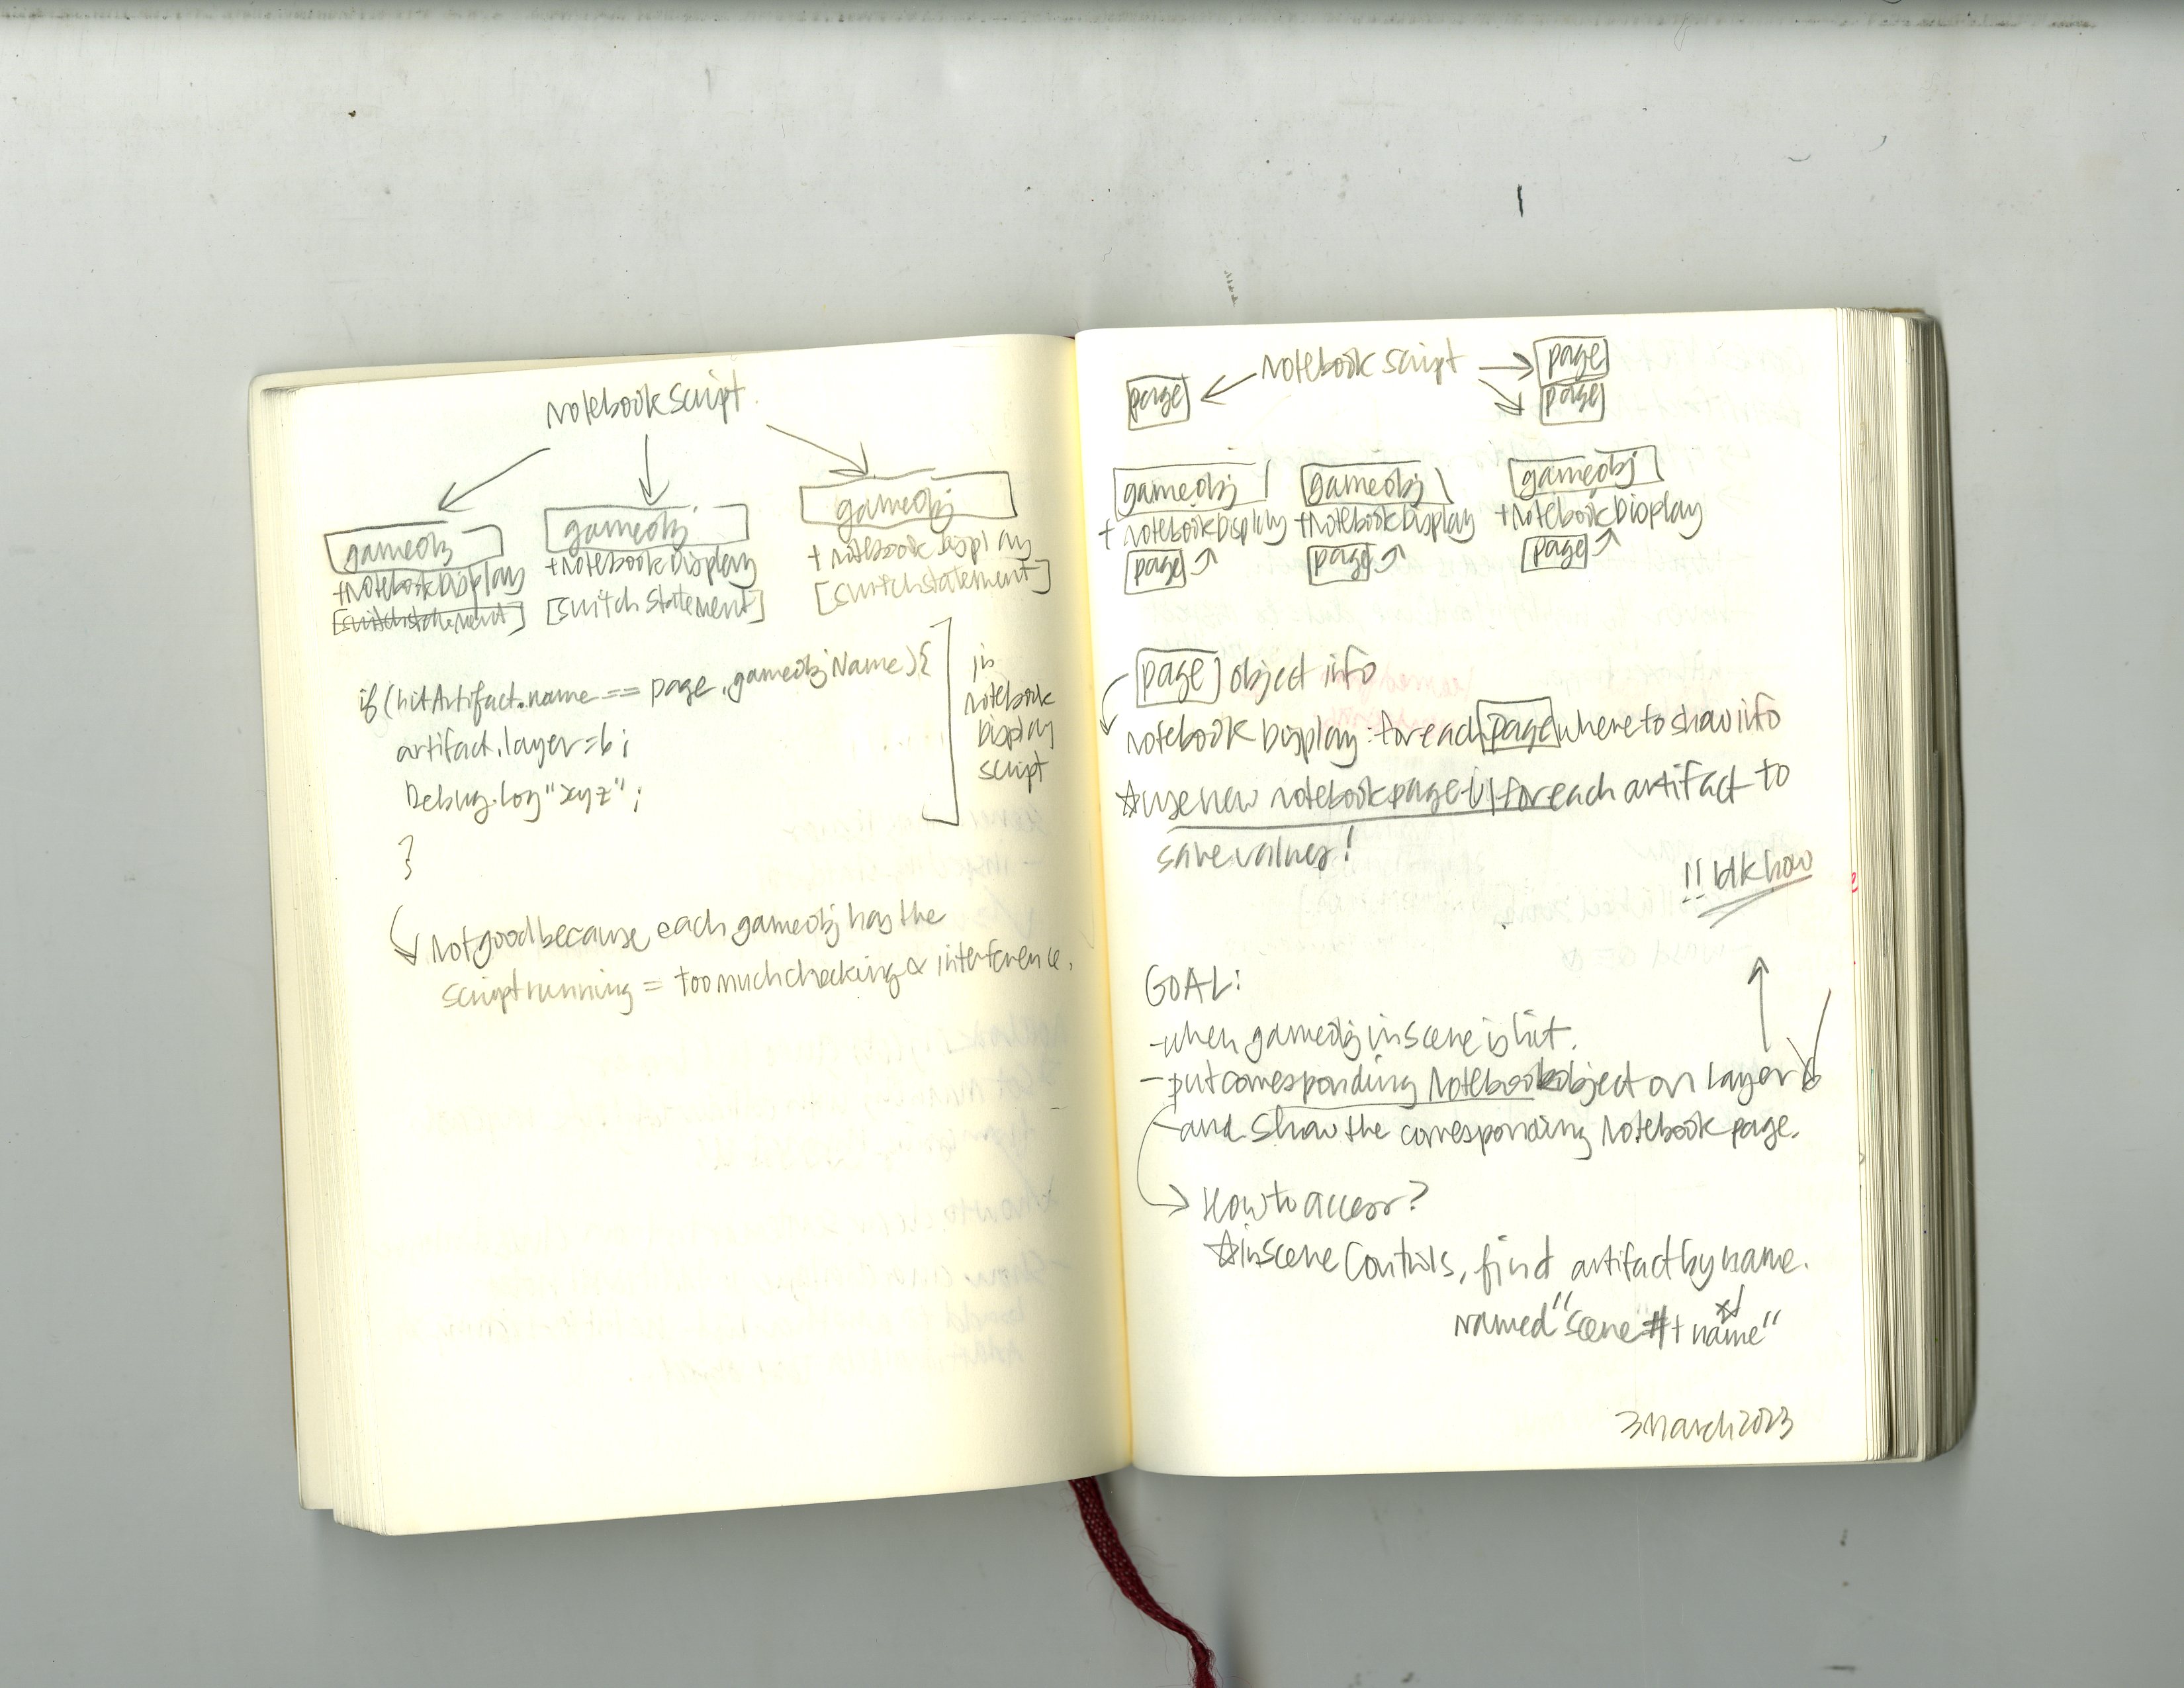 Notebook Script.
gameobj
+NotebookDisplay
[switchstatement]
gameobj
+NotebookDisplay
[switch statement]
gameobj
+NotebookDisplay
[switchstatement]
if(hitArtifact.name == page.gameobjName){
artifact.layer=6;
Debug.Log"xyz";
}
in
notebook
Display
script
Not good because each gameobj has the
script running = too much checking & interference.
Notebook Script
page
page
page
gameobj
+ NotebookDisplay
page
gameobj
+NotebookDisplay
page
gameobj
+NotebookDisplay
page
page object info
Notebook Display: for each page where to show info
☆use new notebookpage for each artifact to
save values!
!! idk how
GOAL:
-when gameobj in scene is hit.
-put corresponding Notebook object on layer 6
-and show the corresponding Notebook page.
How to access?
☆in scene Controls, find artifact by name.
Named "Scene#+ name"
3 March 2023